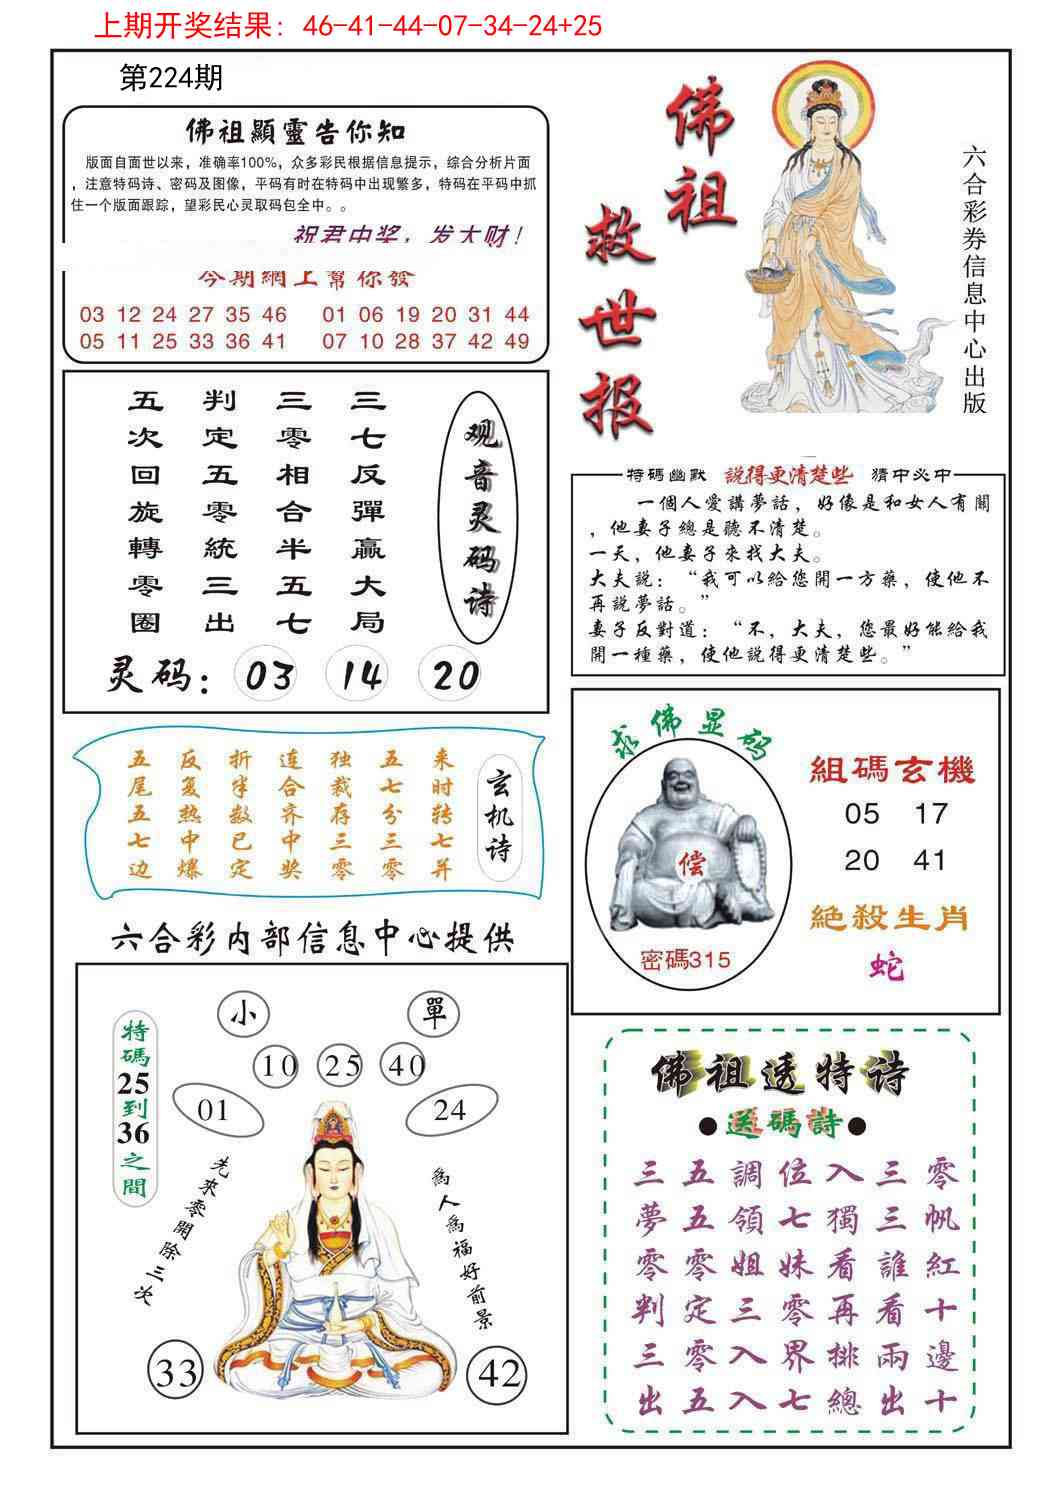 上期开奖结果：46-41-44-07-34-24+25
第224期
佛祖顯靈告你知
版面自面世以来，准确率100%，众多彩民根据信息提示，综合分析片面
，注意特码诗、密码及图像，平码有时在特码中出现繁多，特码在平码中抓
住一个版面跟踪，望彩民心灵取码包全中。。
祝君中奖，发大财！
今期網上幫你發
03 12 24 27 35 46 01 06 19 20 31 44
05 11 25 33 36 41 07 10 28 37 42 49
佛祖
救世报
六合彩券信息中心出版
观音灵码诗
三七反彈贏大局
三零相合半五七
判定五零統三出
五次回旋轉零圈
灵码：03 14 20
特碼幽默 説得更清楚些 猜中必中
一個人愛講夢話，好像是和女人有關
，他妻子總是聽不清楚。
一天，他妻子來找大夫。
大夫説：“我可以给您開一方藥，使他不
再説夢話。”
妻子反對道：“不，大夫，您最好能给我
開一種藥，使他説得更清楚些。”
玄机诗
来时转七并
五七分三零
独裁存三零
连合齐中奖
折半数已定
反复热中爆
五尾五七边
求佛显码
偿
密碼315
組碼玄機
05 17
20 41
絶殺生肖
蛇
六合彩内部信息中心提供
小 單
10 25 40
01 24
特碼25到36之間
先來零開除三次
為人為福好前景
33 42
佛祖透特诗
●送碼詩●
三五調位入三零
夢五領七獨三帆
零零姐妹看誰紅
判定三零再看十
三零入界排兩邊
出五入七總出十